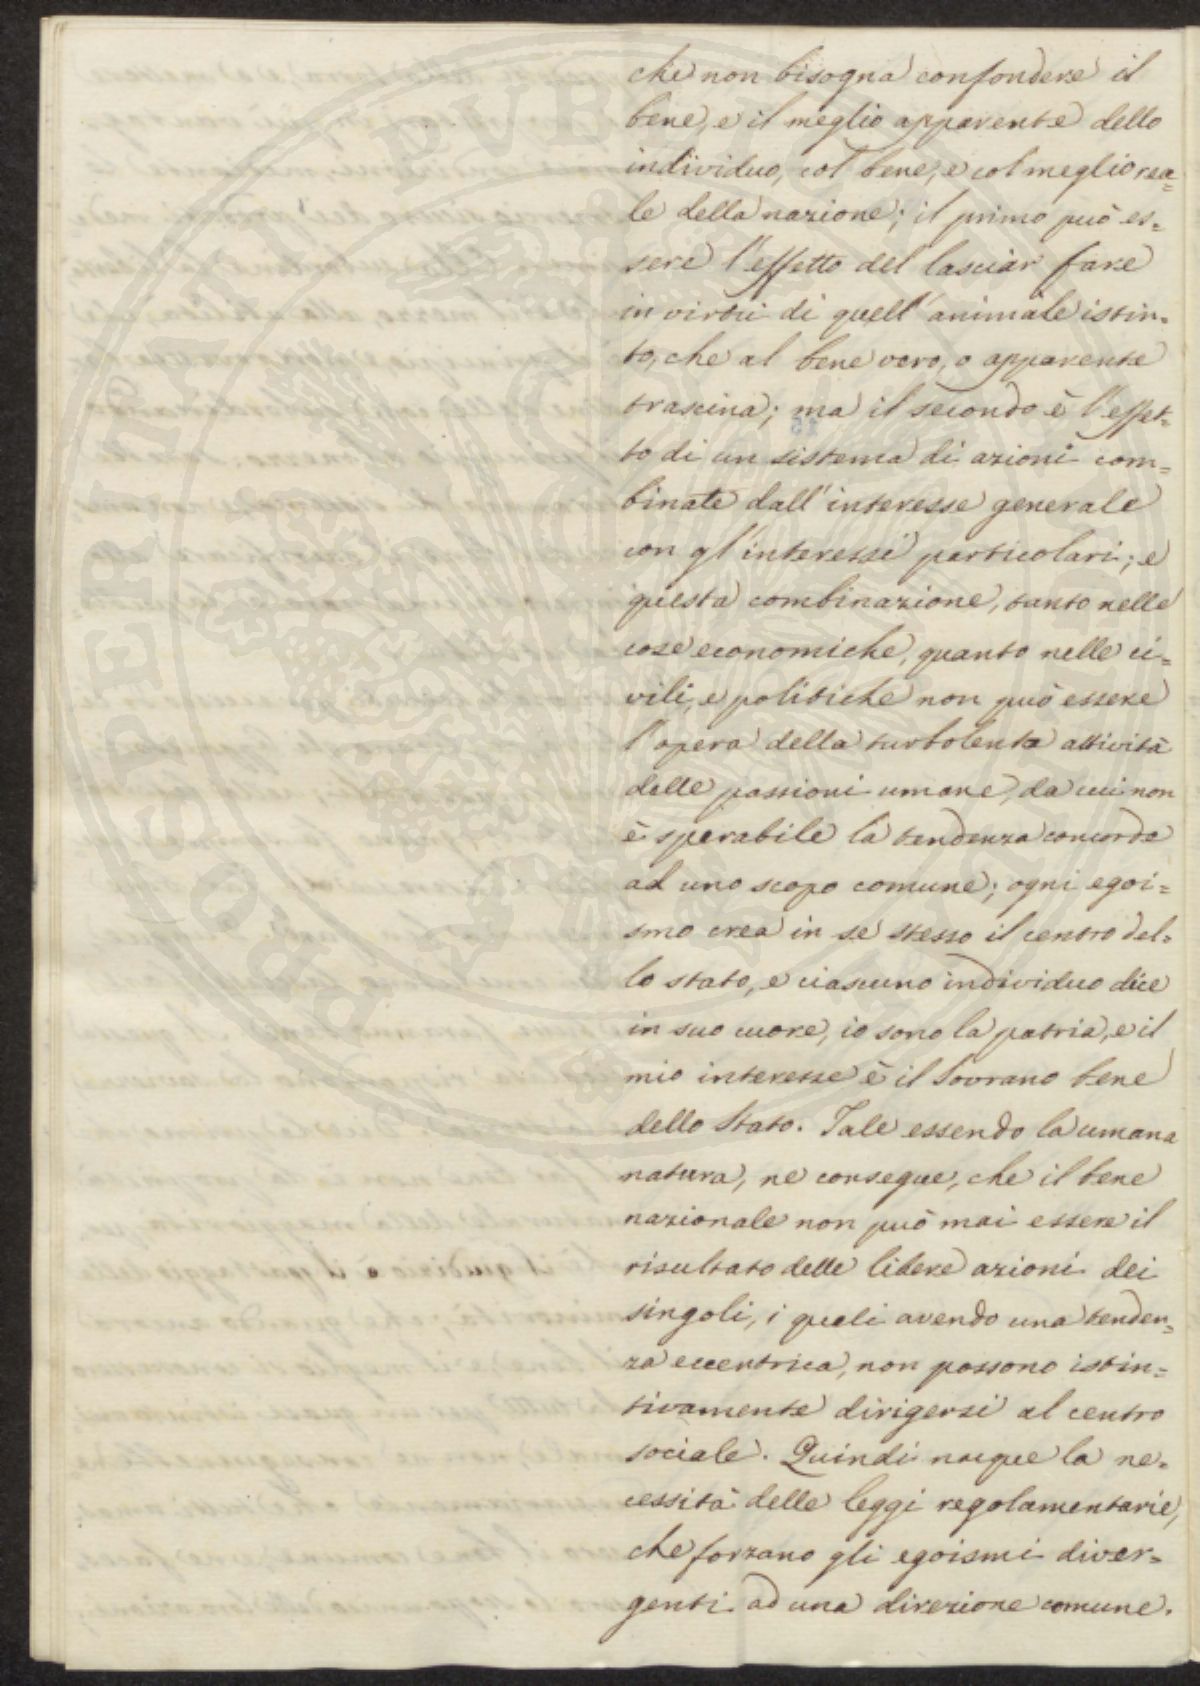 che non bisogna confondere il
bene, e il meglio apparente dello
individuo, col bene, e col meglio rea=
le della nazione; il primo può es=
sere l'effetto del lasciar fare
in virtù di quell'animale istin=
to, che al bene vero, o apparente
trascina; ma il secondo è l'effet=
to di un sistema di azioni com=
binate dall'interesse generale
con gl'interessi particolari; e
questa combinazione, tanto nelle
cose economiche, quanto nelle ci=
vili, e politiche non può essere
l'opera della turbolenta attività
delle passioni umane, da cui non
è sperabile la tendenza concorde
ad uno scopo comune; ogni egoi=
smo crea in se stesso il centro del=
lo stato, e ciascuno individuo dice
in suo cuore, io sono la patria, e il
mio interesse è il Sovrano bene
dello Stato. Tale essendo la umana
natura, ne consegue, che il bene
nazionale non può mai essere il
risultato delle libere azioni dei
singoli, i quali avendo una tenden=
za eccentrica, non possono istin=
tivamente dirigersi al centro
sociale. Quindi nacque la ne=
cessità delle leggi regolamentarie,
che forzano gli egoismi diver=
genti ad una direzione comune.
PROSPERINAT PUBLICE